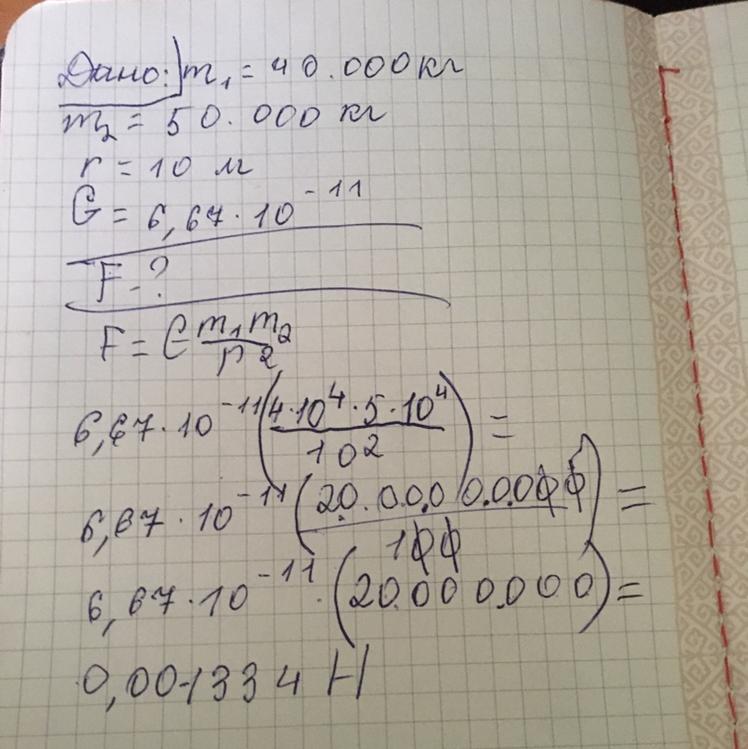 Дано: m₁ = 40.000 кг
m₂ = 50.000 кг
r = 10 м
G = 6,67 · 10⁻¹¹
F - ?
F = G m₁m₂/r²
6,67 · 10⁻¹¹ (4·10⁴·5·10⁴/10²) =
6,67 · 10⁻¹¹ (20.000.000.000/100) =
6,67 · 10⁻¹¹ · (20.000.000) =
0,001334 Н